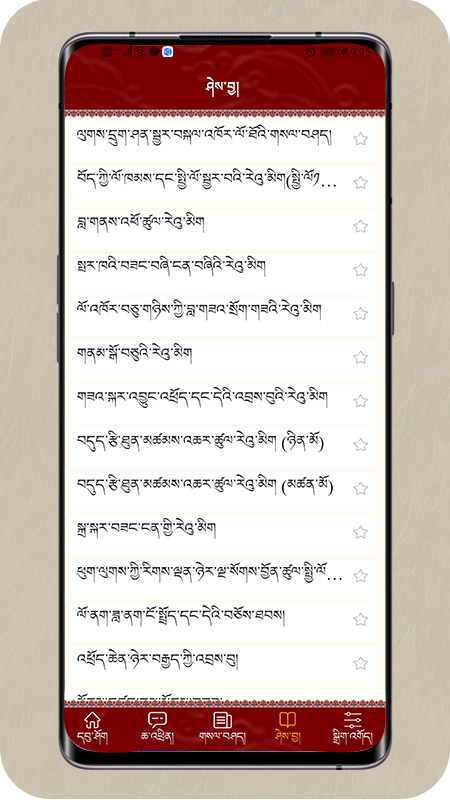 9:25
ཤེས་བྱ།
ལུགས་དྲུག་ཤན་སྦྱར་བསྐལ་འཁོར་ལོ་ཐོའི་གསལ་བཤད།
བོད་ཀྱི་ལོ་ཁམས་དང་སྤྱི་ལོ་སྦྱར་བའི་རེའུ་མིག(སྤྱི་ལོ༡...
བླ་གནས་འཕོ་ཚུལ་རེའུ་མིག
སྤར་ཁའི་བཟང་བཞི་ངན་བཞིའི་རེའུ་མིག
ལོ་འཁོར་བཅུ་གཉིས་ཀྱི་བླ་གཟའ་སྲོག་གཟའི་རེའུ་མིག
གནམ་སྒོ་བཅུའི་རེའུ་མིག
གཟའ་སྐར་འབྱུང་འཕྲོད་དང་དེའི་འབྲས་བུའི་རེའུ་མིག
བདུད་རྩི་ཐུན་མཚམས་འཆར་ཚུལ་རེའུ་མིག (ཉིན་མོ)
བདུད་རྩི་ཐུན་མཚམས་འཆར་ཚུལ་རེའུ་མིག (མཚན་མོ)
སྐྲ་སྐར་བཟང་ངན་གྱི་རེའུ་མིག
ཕུག་ལུགས་ཀྱི་རིགས་ལྡན་ཉེར་ལྔ་སོགས་བྱོན་ཚུལ་སྤྱི་ལོ...
ལོ་ནག་ཟླ་ནག་ངོ་སྤྲོད་དང་དེའི་བཅོས་ཐབས།
འཕྲོད་ཆེན་ཉེར་བརྒྱད་ཀྱི་འབྲས་བུ།
དབུ་ཤོག
ཆ་འཕྲིན།
གསལ་བཤད།
ཤེས་བྱ།
སྒྲིག་འགོད།